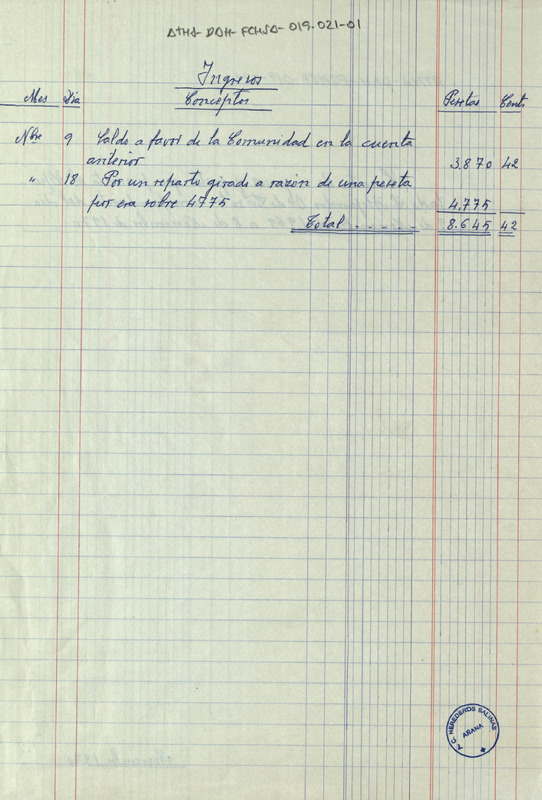 ATHA-DAH-FCHSA-019.021-01
Ingresos
Mes Dia Conceptos Pesetas Cents
Nbre 9 Saldo a favor de la Comunidad en la cuenta
anterior 3.870 42
" 18 Por un reparto girado a razón de una peseta
por era sobre 4775 4.775
Total . - . - . - . 8.645 42
F.C. HEREDEROS SALINAS
AÑANA